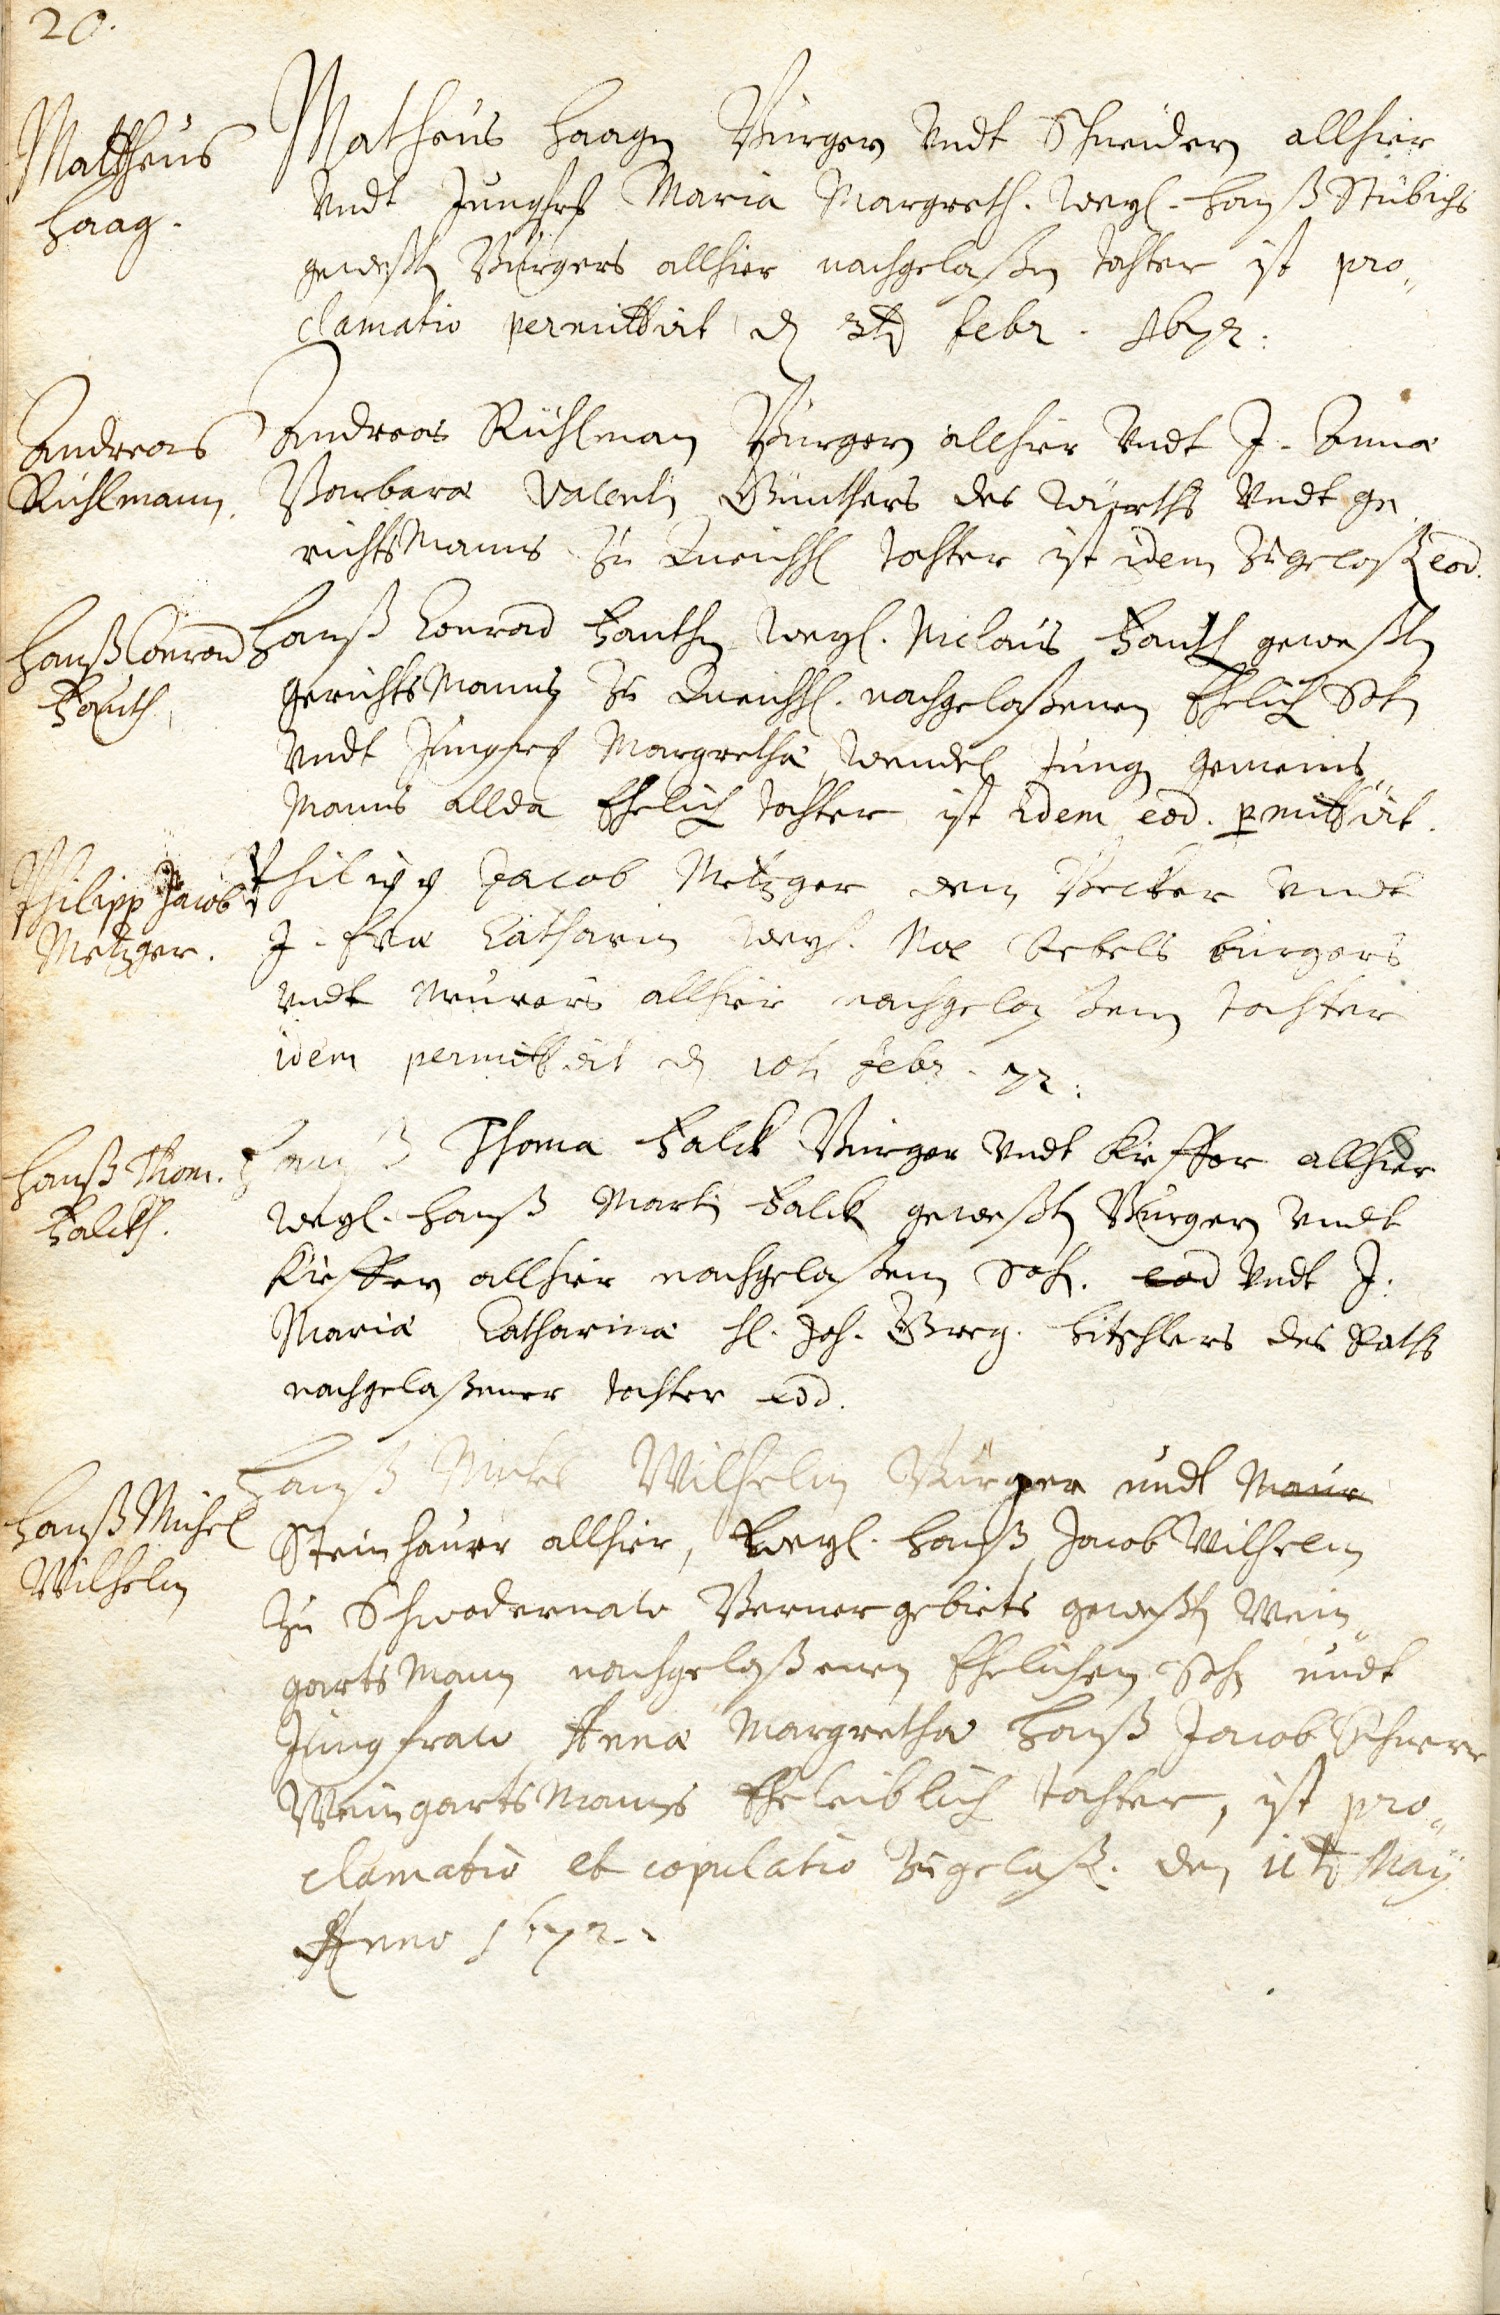 20.
Mattheus
Haag.
Matheus Haagn Burgern Undt Schneidern allhier
Undt Jungfr Maria Margreth. Weyl. Hanß Stübichs
geweßen Bürgers allhier nachgelaßen Tochter ist pro„
clamatio permittirt d 3t Febr. 1672.
Andreas
Rühlmann.
Andreas Rühlman Bürgern allhier Undt J. Anna
Barbara Valentin Günthers des Würths Undt ge
richtsManns zu Queichh Tochter ist idem zugelaß eod.
Hanß Conrad
Fauth.
Hanß Conrad Fauthen Weyl. Niclaus Fauth geweßen
gerichtsManns zu Queichh. nachgelaßenen Ehelich Sohn
Undt Jungfr Margretha Wendel Jung gemeins„
Manns allda Ehelich Tochter ist idem eod. pmittirt.
Philipp Jacob
Metzger.
Philipp Jacob Metzger dem Becker Undt
J. Eva Catharin Weyl. burgers
Undt allhier nachgelaßenen Tochter
idem permittirt d 10t Febr. 72.
Hanß Thom.
Falckh.
Hanß Thoma Falck Bürger Undt Kieffer allhier
Weyl. Hanß Martin Falck geweßten Bürgern Undt
Kieffern allhier nachgelaßenen Soh. eod Undt J.
Maria Catharina H. Joh. Georg. des Raths
nachgelaßener Tochter eod.
Hanß Michel
Wilhelm
Hanß Michel Wilhelm Bürger undt Maur
Steinhauer allhier, Weyl. Hanß Jacob Wilhelm
zu Schwadernaw Berner gebiets geweßten Wein„
gartsMann nachgelaßenen Ehelichen Sohn undt
Jungfraw Anna Margretha Hanß Jacob
WeingartsManns Eheleiblich Tochter, ist pro„
clamatio et copulatio zugelaß. den 11t May
Anno 1672.